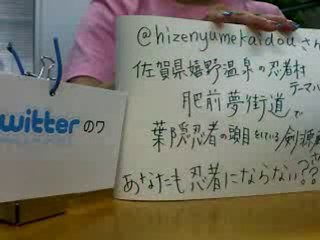 witterのワ
@hizenyumekaidouさん
佐賀県嬉野温泉の忍者村
テーマパーク
肥前夢街道で
葉隠忍者の頭目をしている剣源
あなたも忍者にならない??